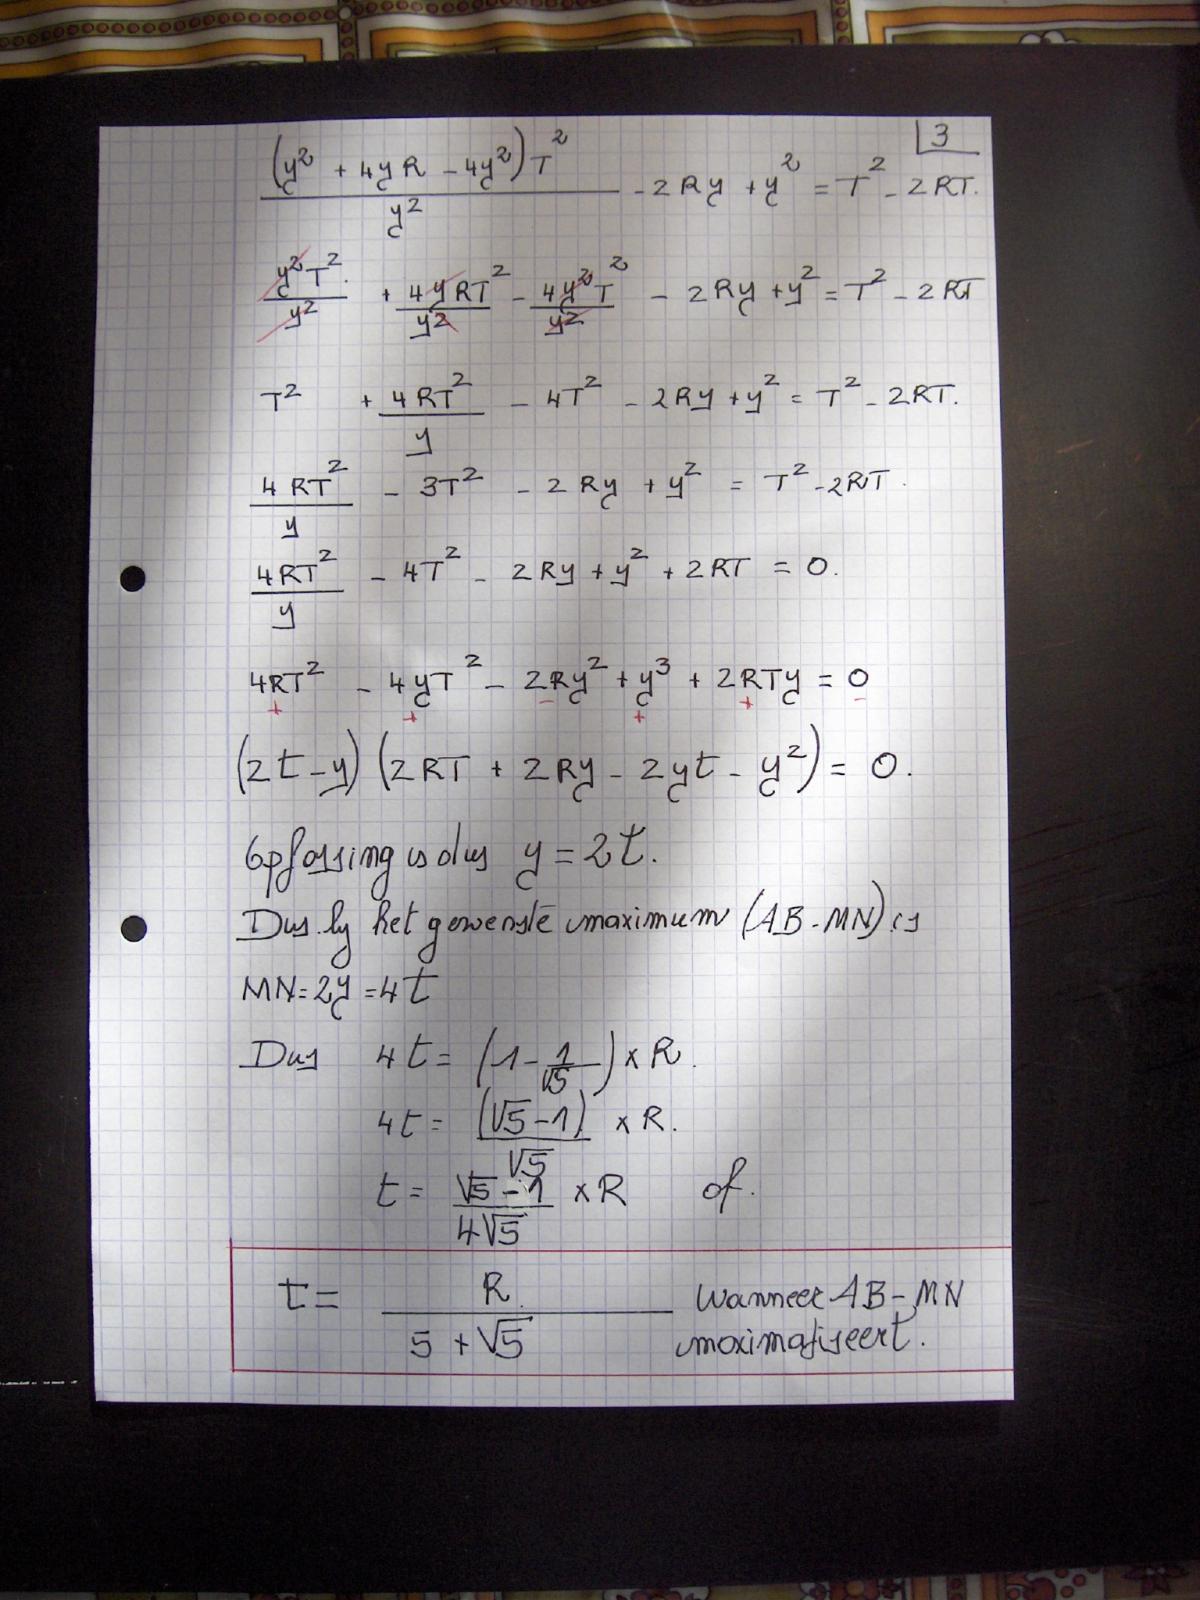 3
(y² + 4yR - 4y²)T² / y² - 2Ry + y² = T² - 2RT.
y²T² / y² + 4yRT² / y² - 4y²T² / y² - 2Ry + y² = T² - 2RT
T² + 4RT² / y - 4T² - 2Ry + y² = T² - 2RT.
4RT² / y - 3T² - 2Ry + y² = T² - 2RT.
4RT² / y - 4T² - 2Ry + y² + 2RT = 0.
4RT² - 4yT² - 2Ry² + y³ + 2RTy = 0
+ + - + + -
(2t - y) (2RT + 2Ry - 2yt - y²) = 0.
Oplossing is dus y = 2t.
Dus by het gewenste maximum (AB - MN) is
MN = 2y = 4t
Dus 4t = (1 - 1/√5) × R.
4t = (√5 - 1) / √5 × R.
t = √5 - 1 / 4√5 × R of.
t = R. / 5 + √5 wanneer AB - MN
maximaliseert.